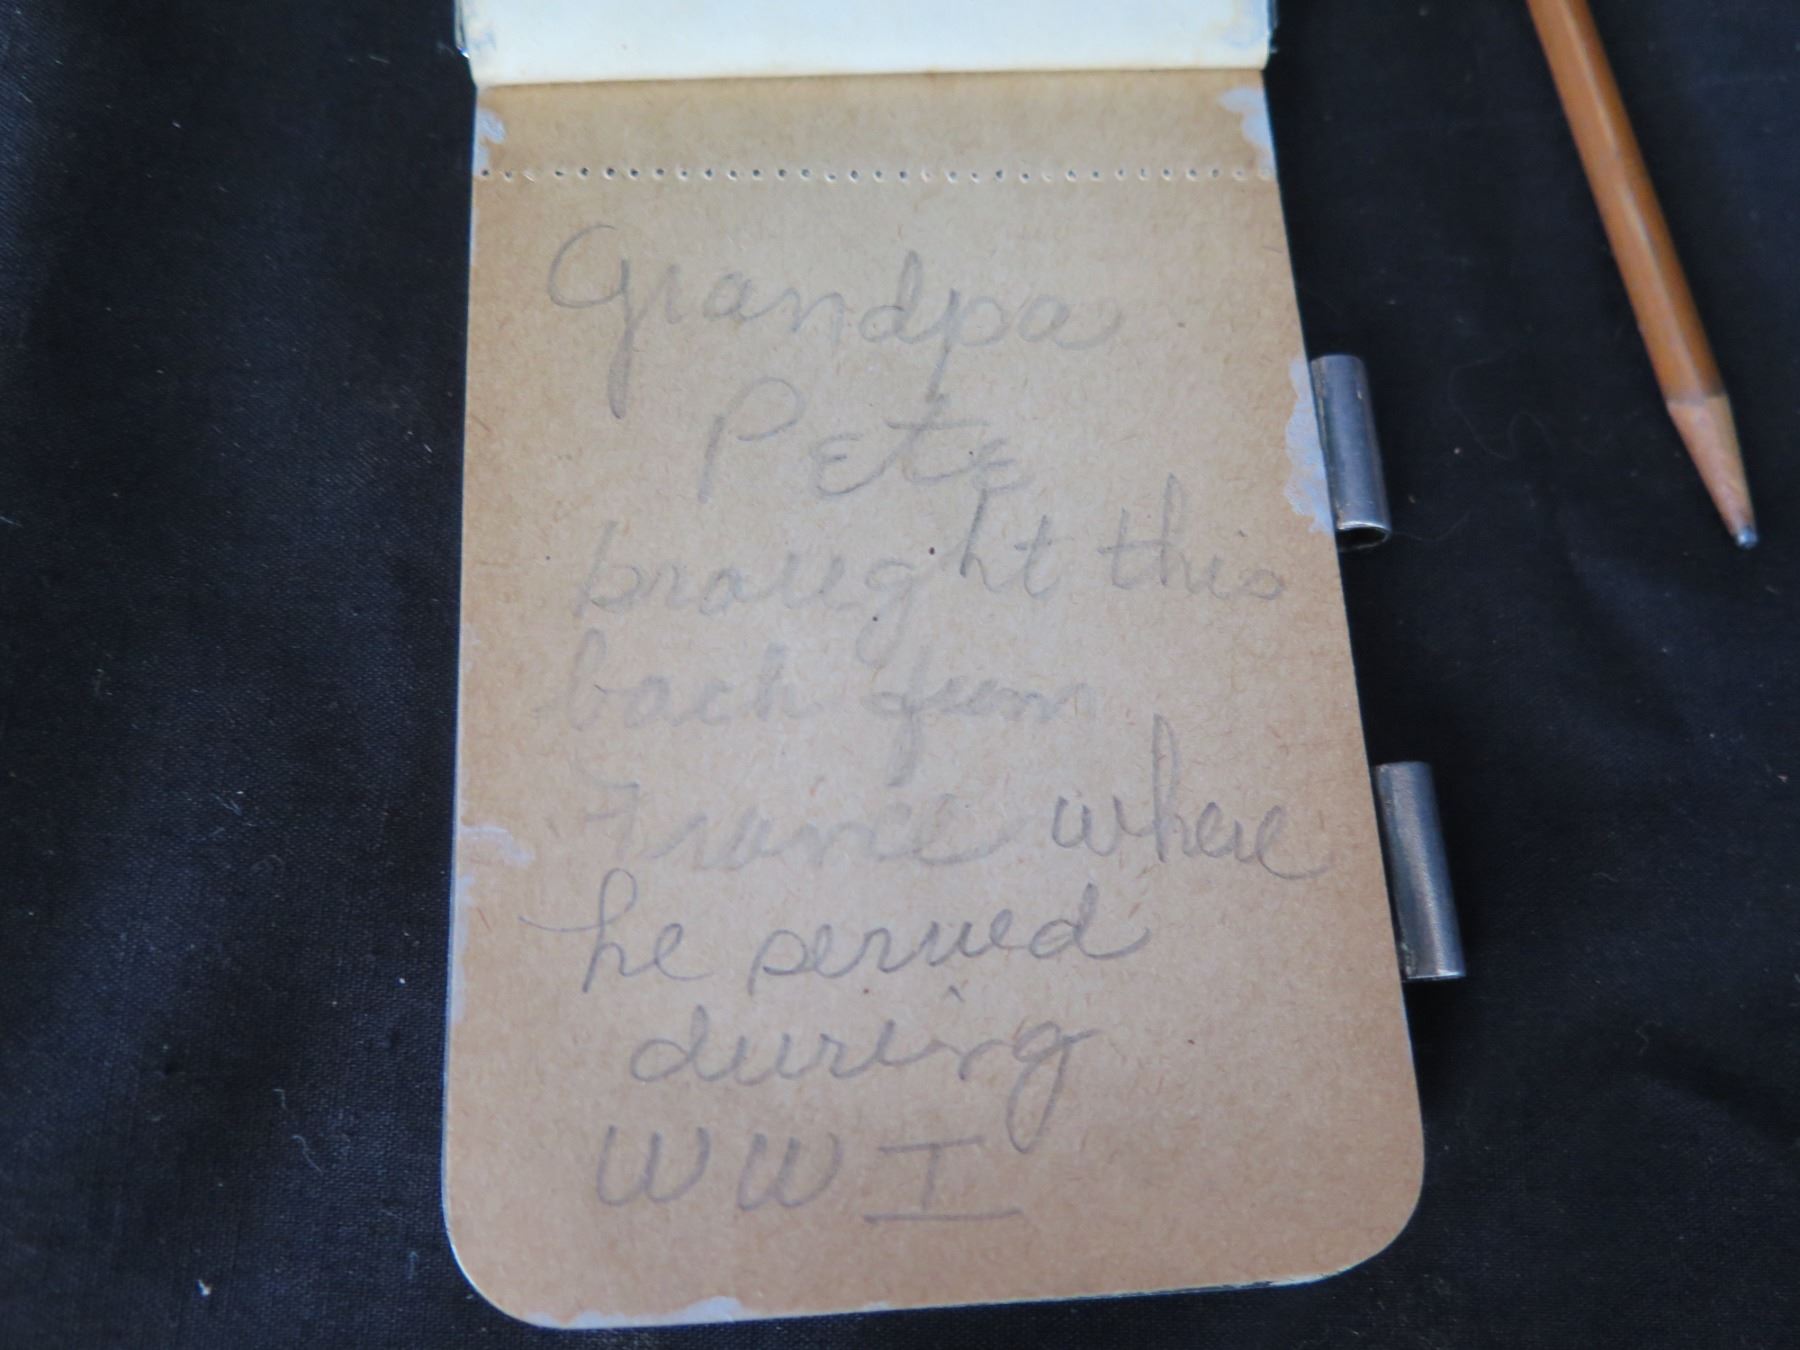 Grandpa
Pete
brought this
back from
France where
he served
during
WW I